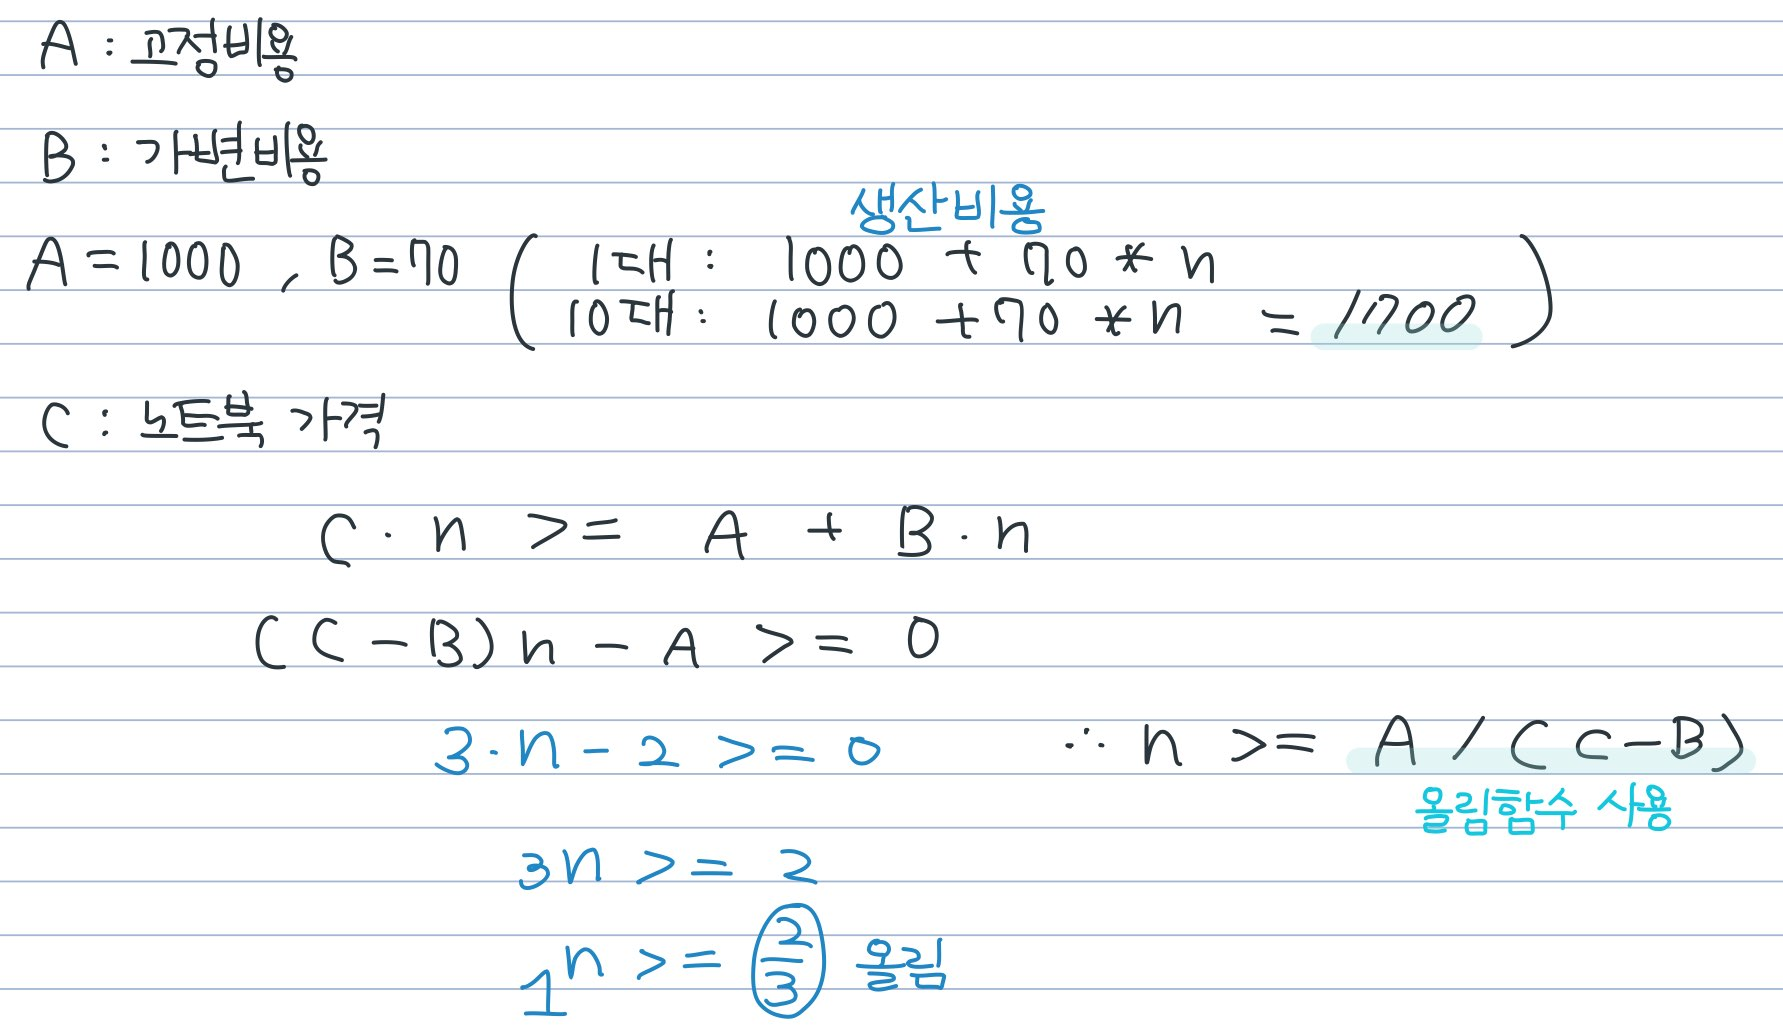 A : 고정비용
B : 가변비용
생산비용
A = 1000 , B = 70 ( 1대 : 1000 + 70 * n
10대 : 1000 + 70 * n = 1700 )
C : 노트북 가격
C · n >= A + B · n
(C - B) n - A >= 0
3 · n - 2 >= 0 ∴ n >= A / (C - B)
올림함수 사용
3n >= 2
1 n >= 2/3 올림